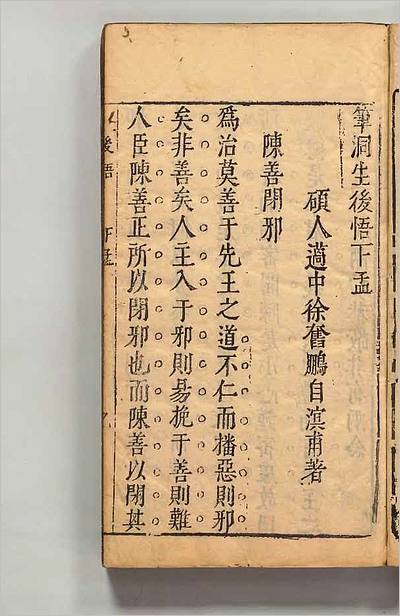 筆洞生後悟下孟
碩人薖中徐奮鵬自溟甫著
陳善閉邪
為治莫善于先王之道不仁而播惡則邪
矣非善矣人主入于邪則易挽于善則難
人臣陳善正所以閉邪也而陳善以閉其
後悟 下孟